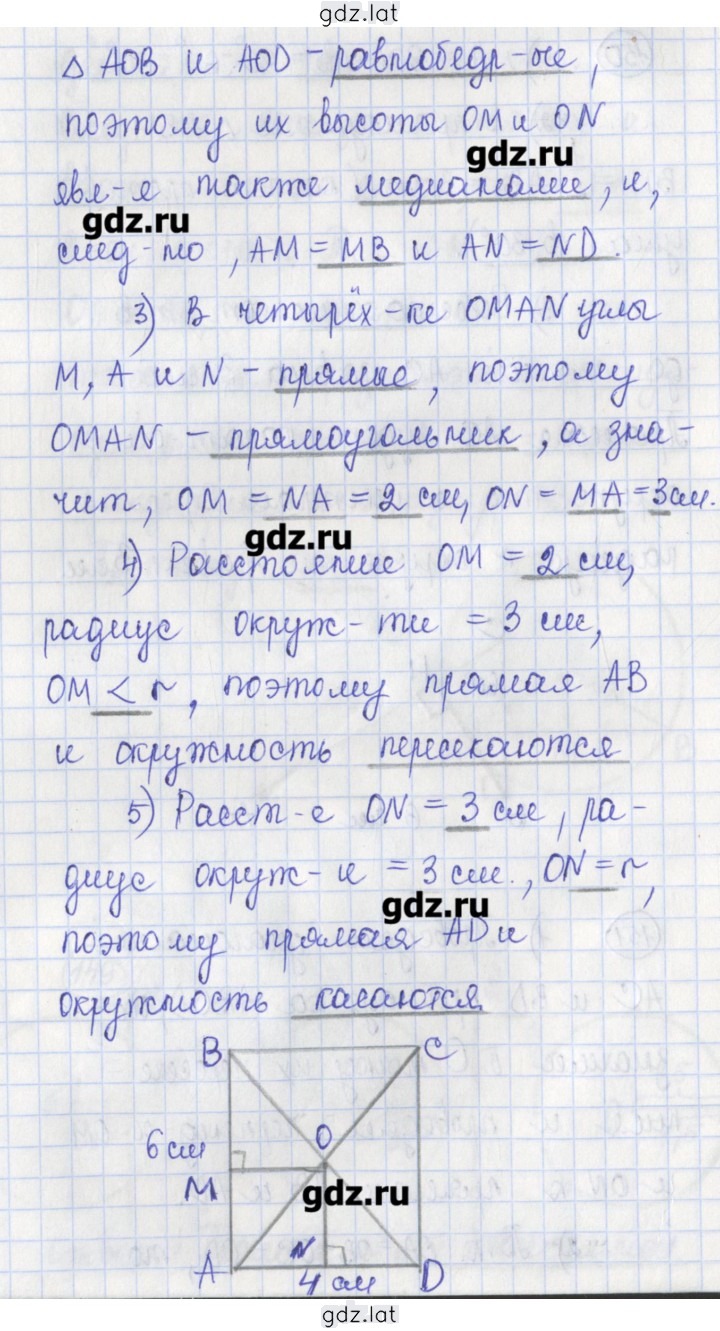 gdz.lat
△ AOB и AOD – равнобедр-ые,
поэтому их высоты OM и ON
gdz.ru
явл-я также медианами, и,
gdz.ru
след-но, AM = MB и AN = ND.
3) В четырёх-ке OMAN углы
M, A и N – прямые, поэтому
OMAN – прямоугольник, а зна-
чит, OM = NA = 2 см, ON = MA = 3 см.
gdz.ru
4) Расстояние OM = 2 см,
радиус окруж-ти = 3 см,
OM < r, поэтому прямая AB
и окружность пересекаются
5) Расст-е ON = 3 см, ра-
диус окруж-и = 3 см., ON = r,
gdz.ru
поэтому прямая AD и
окружность касаются
B C
6 см O
M
gdz.ru
N
A 4 см D
gdz.lat